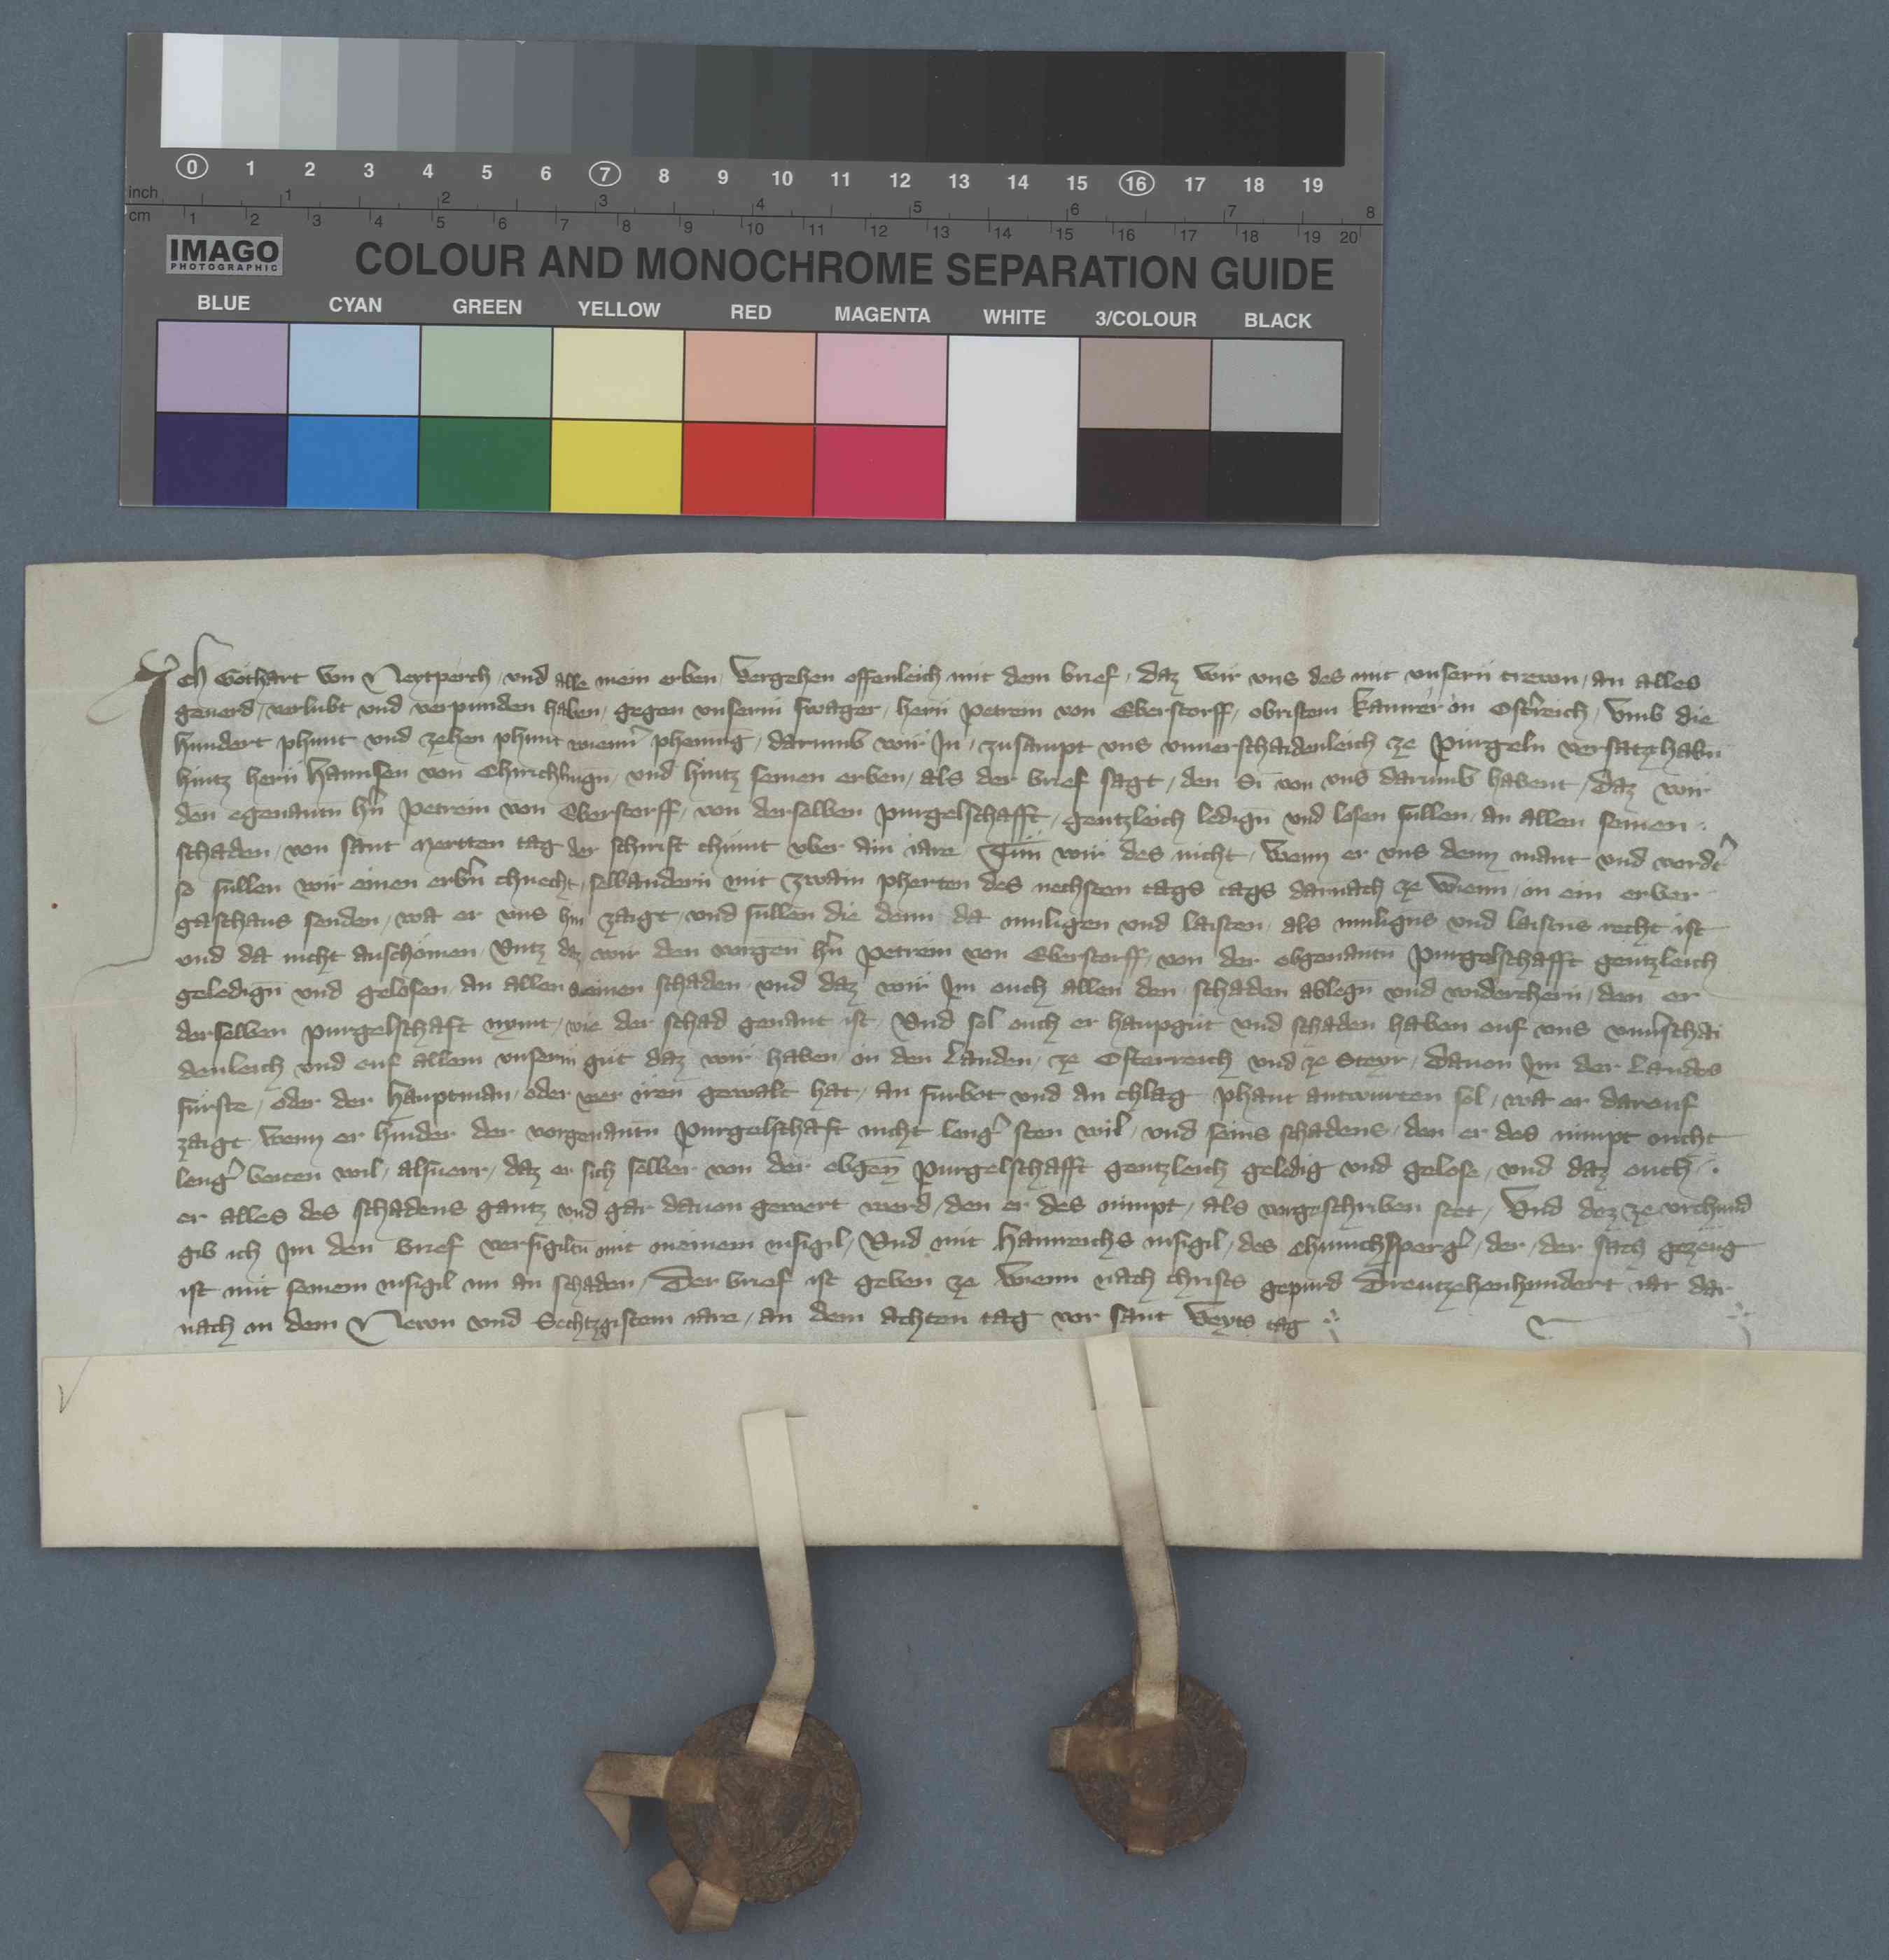 0 1 2 3 4 5 6 7 8 9 10 11 12 13 14 15 16 17 18 19
inch 1 2 3 4 5 6 7 8
cm 1 2 3 4 5 6 7 8 9 10 11 12 13 14 15 16 17 18 19 20
IMAGO
PHOTOGRAPHIC
COLOUR AND MONOCHROME SEPARATION GUIDE
BLUE CYAN GREEN YELLOW RED MAGENTA WHITE 3/COLOUR BLACK
Ich Gothart von Neytperch, und alle mein erben, Vergehen offenleich mit dem brief, daz wir uns des mit unsern trewn, an alles
geuerd, verlubt und verpunden haben, gegen unserm swager, hern Petrein von Eberstorff, obristem kamrer in Ostreich, Umb die
hundert phunt und zehen phunt wienner phening, darumb wir In, zusampt uns unuerschaidenleich ze pürgeln versatzt habn
hintz hern Hannsen von, und hintz seinen erben, als der brief sagt, den Si von uns darumb habent, daz wir
den egenantn hern Petrein von Eberstorff, von derselben purgelschafft, gentzleich ledign und losen sullen, an allen seinen
schaden, von sant Mertten tag der schirist chümt uber ain iare Tün wir des nicht, Wenn er uns denn mant und vordert
so sullen wir einen erbern chnecht, selbandern mit zwain pherten des nechsten tags tags darnach ze Wienn, in ein erber
gasthaus senden, wa er uns hin zaigt, und sullen die denn da innligen und laisten, als innligens und laistens recht ist
und da nicht auschomen, Untz daz wir den vorgen hern Petrein von Eberstorff, von der obgenantn purgelschafft gentzleich
geledign und gelosen, an allen seinen schaden, und daz wir Im auch allen den schaden ablegn und widerchern, den er
derselben purgelschaft nymt, wie der schad genant ist, Und sol auch er haupgut und schaden haben auf uns unuerschai
denleich und auf allem unserm güt daz wir haben in den Landen, ze Osterreich und ze Steyr, Dauon Im der Landes
fürste, oder der hauptman, oder wer iren gewalt hat, an furbot und an chlag phant antwurten sol, wa er darauf
zaigt Wenn er hinder der vorgenantn purgelschaft nicht lenger sten wil, und seins schadens, den er des nimpt nicht
lenger beiten wil, alsuerr, daz er sich selber von der obgen purgelschafft gentzleich geledig und gelose, und daz auch
er alles des schadens gantz und gar dauon gewert werd, den er des nimpt, als vorgeschriben stet, Und daz ze urchund
gib ich Im den brief versigiltn mit meinem insigil, Und mit Hainreichs insigil, des, der, der sach gezeug
ist mit seinem insigil im an schaden, Der brief ist geben ze Wienn nach christs gepürd Dreutzehenhundert iar dar
nach in dem Newn und Sechtzgistem iare, an dem achten tag vor sant Veyts tag